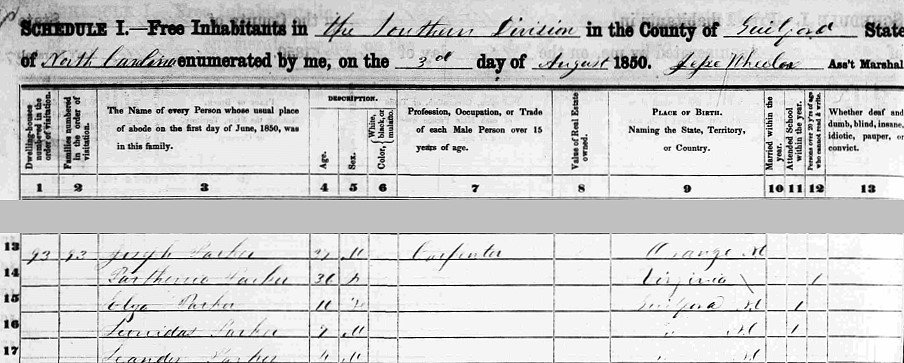 SCHEDULE I.—Free Inhabitants in the Southern Division in the County of Guilford State
of North Carolina enumerated by me, on the 3rd day of August 1850. Wheeler Ass't Marshal
Dwelling-houses numbered in the order of visitation.
Families numbered in the order of visitation.
The Name of every Person whose usual place of abode on the first day of June, 1850, was in this family.
DESCRIPTION.
Age.
Sex.
Color, {White, black, or mulatto.
Profession, Occupation, or Trade of each Male Person over 15 years of age.
Value of Real Estate owned.
PLACE OF BIRTH. Naming the State, Territory, or Country.
Married within the year.
Attended School within the year.
Persons over 20 y'rs of age who cannot read & write.
Whether deaf and dumb, blind, insane, idiotic, pauper, or convict.
1 2 3 4 5 6 7 8 9 10 11 12 13
13 93 93 Joseph Parker M Carpenter Orange NC
14 Parthenia Parker 36 Virginia 1
15 Parker Guilford NC 1
16 Leonidas Parker 7 M " NC 1
17 Leander Parker M